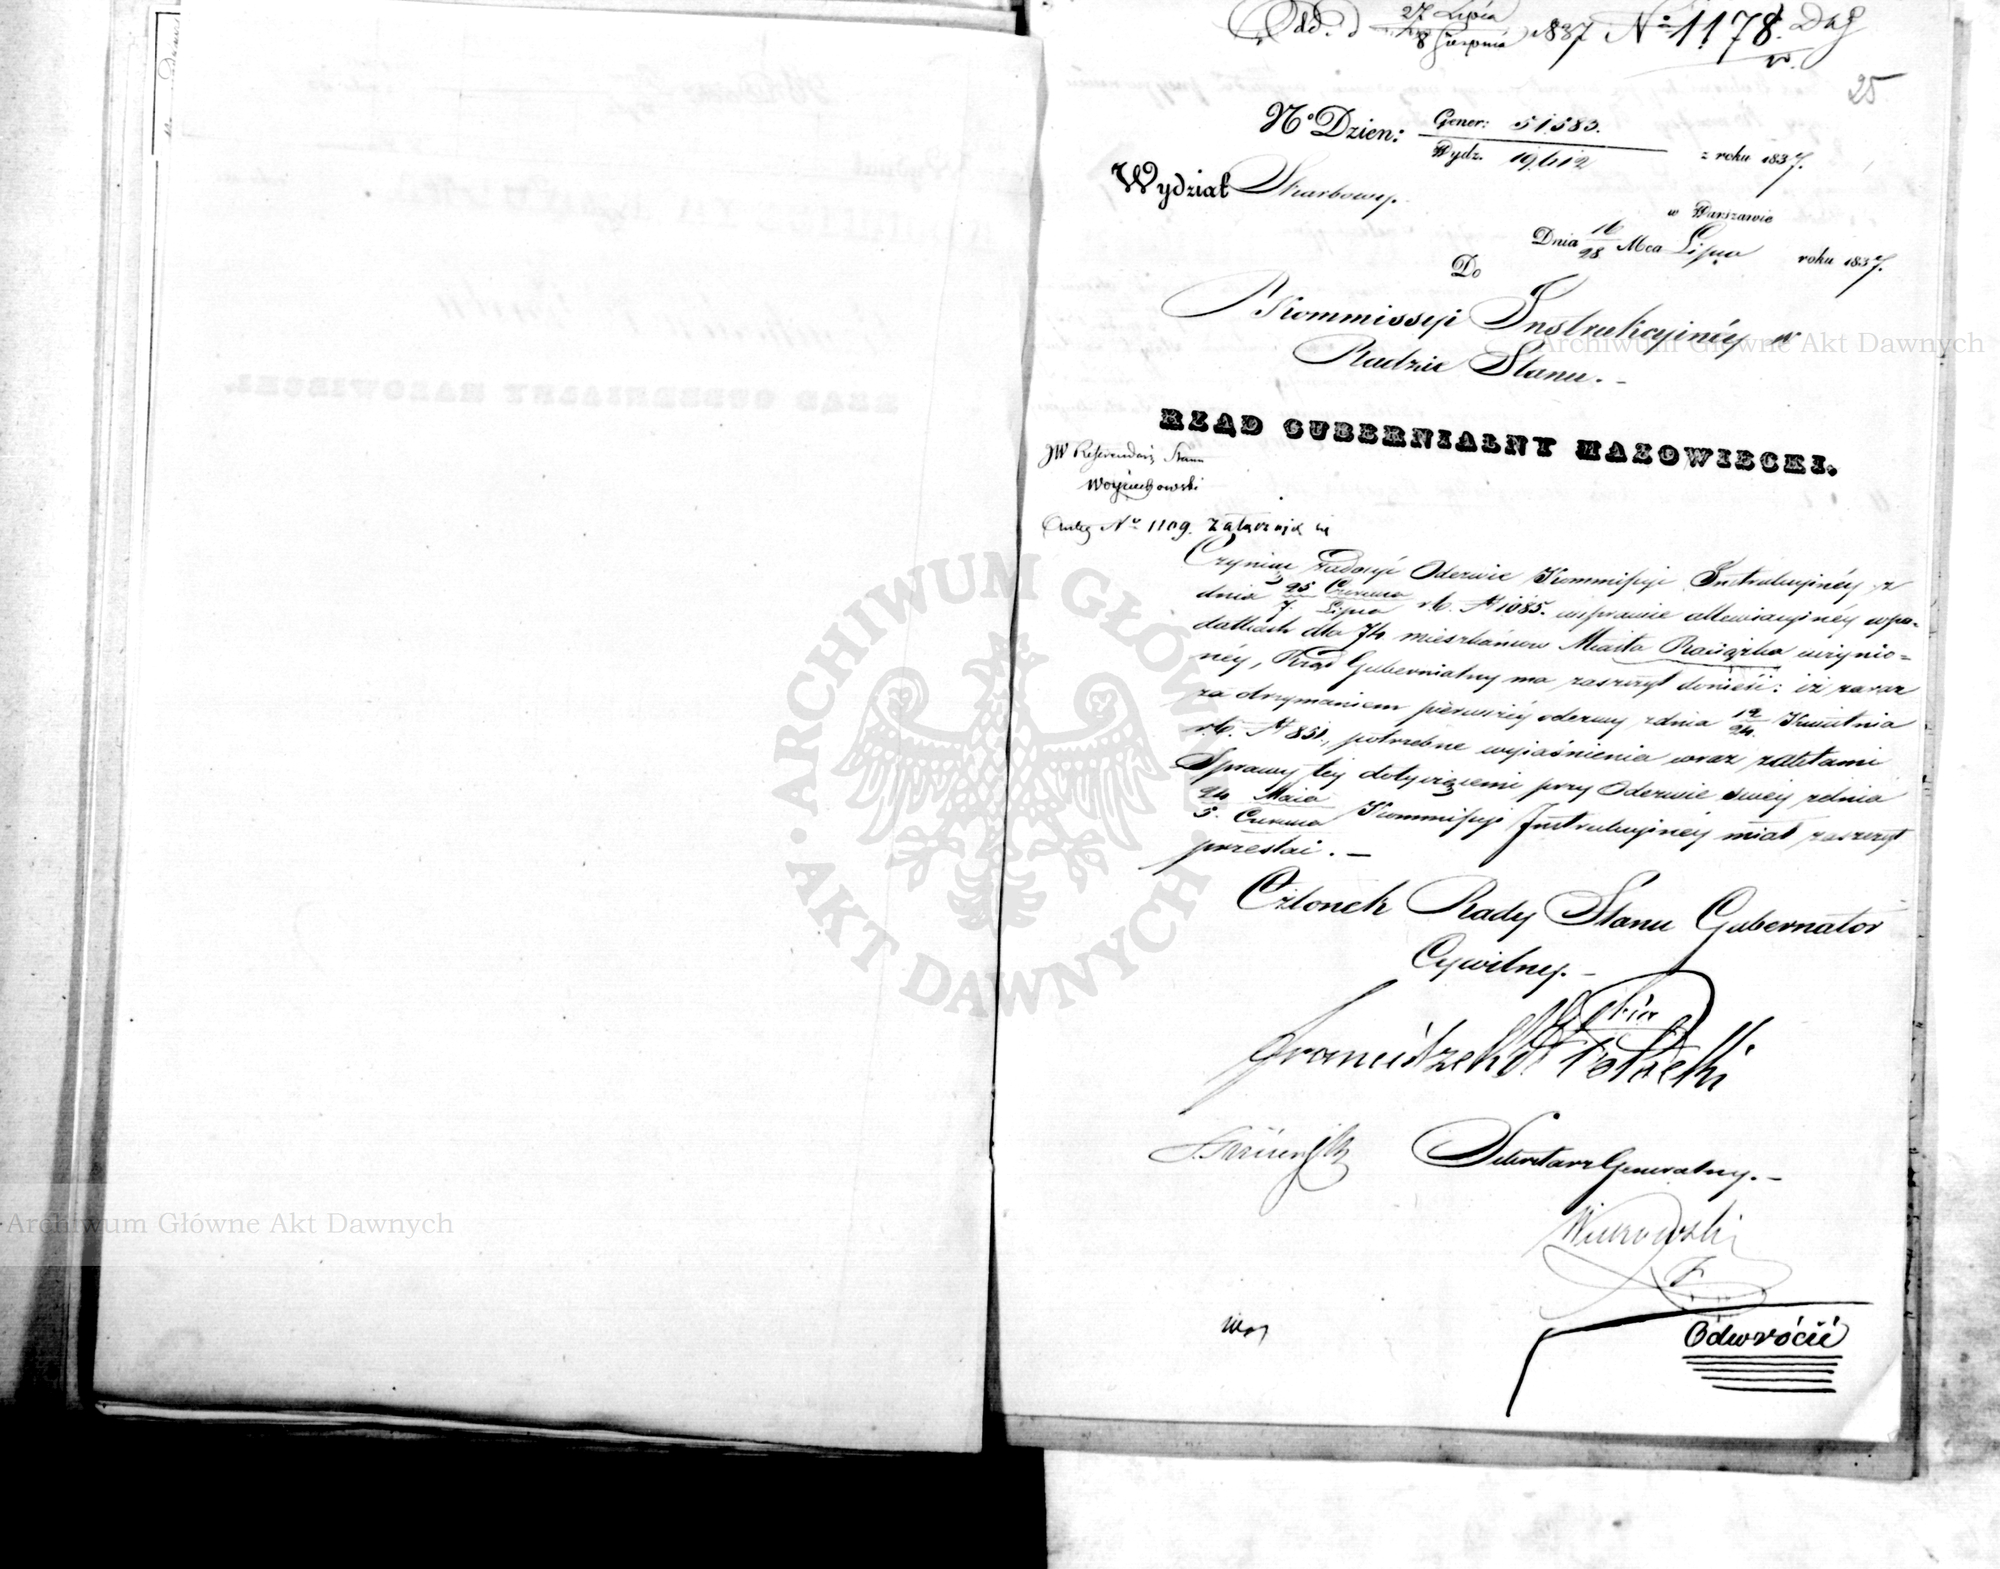 Odd. d 27 Lipca
8 Sierpnia 1837 No 1178.
25
No Dzien: Gener: 51583.
Wydz. 19612 z roku 1837.
Wydział Skarbowy.
w Warszawie
Dnia 16/28 Mca Lipca roku 1837.
Do
Kommissyi Instrukcyinéy w
Radzie Stanu. -
RZĄD GUBERNIALNY MAZOWIECKI.
JW Referendarz Stanu
Woyciechowski
No 1109. załatwia się
Czyniąc zadosyć Odezwie Kommissyi Instrukcyinéy z
dnia 25 Czerwca
7 Lipca r.b. N 1085. w sprawie allewiacyinéy w po=
datkach dla 74 mieszkańców Miasta Raciąża uczynio=
néy, Rząd Gubernialny ma zaszczyt donieść: iż zaraz
za otrzymaniem pierwszéy odezwy z dnia 12/24 Kwietnia
r.b. N 851, potrzebne wyjaśnienia wraz z aktami
Sprawy téy dotyczącemi przy Odezwie swéy z dnia
24 Maia
5 Czerwca Kommissyi Instrukcyinéy miał zaszczyt
przesłać. —
Członek Rady Stanu Gubernator
Cywilny. -
Franciszek Potocki
Sekretarz Generalny. -
Odwrócić
Archiwum Główne Akt Dawnych
Archiwum Główne Akt Dawnych
ARCHIWUM GŁÓWNE · AKT DAWNYCH ·